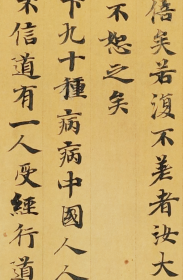 悟矣若復不差者汝大
不恕之矣
下九十種病病中國人人
不信道有一人受經行道